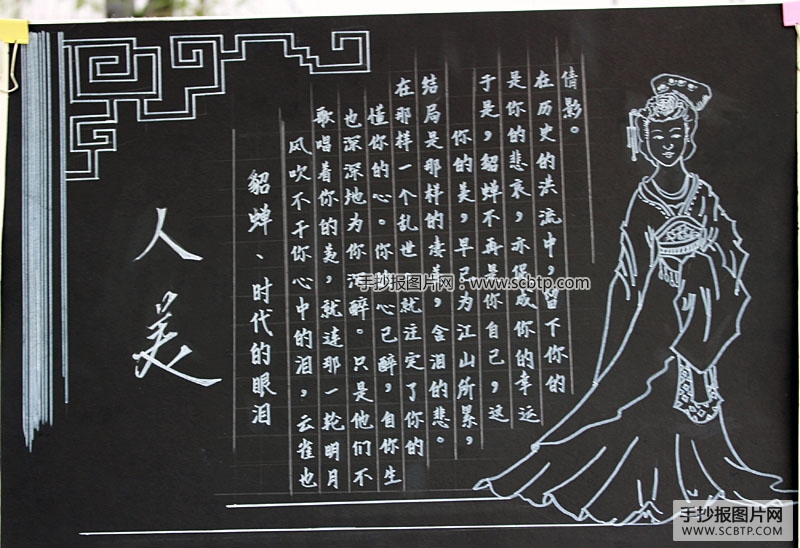 人美
貂蝉、时代的眼泪
风吹不干你心中的泪，云雀也
歌唱着你的美，就连那一轮明月
也深深地为你沉醉。只是他们不
懂你的心。你的心已醉，自你生
在那样一个乱世，就注定了你的
结局是那样的凄美，含泪的悲。
你的美，早已为江山所累，
于是，貂蝉不再是你自己，这
是你的悲哀，亦促成你的幸运
在历史的洪流中，留下你的
倩影。
手抄报图片网：www.scbtp.com
手抄报图片网
WWW.SCBTP.COM